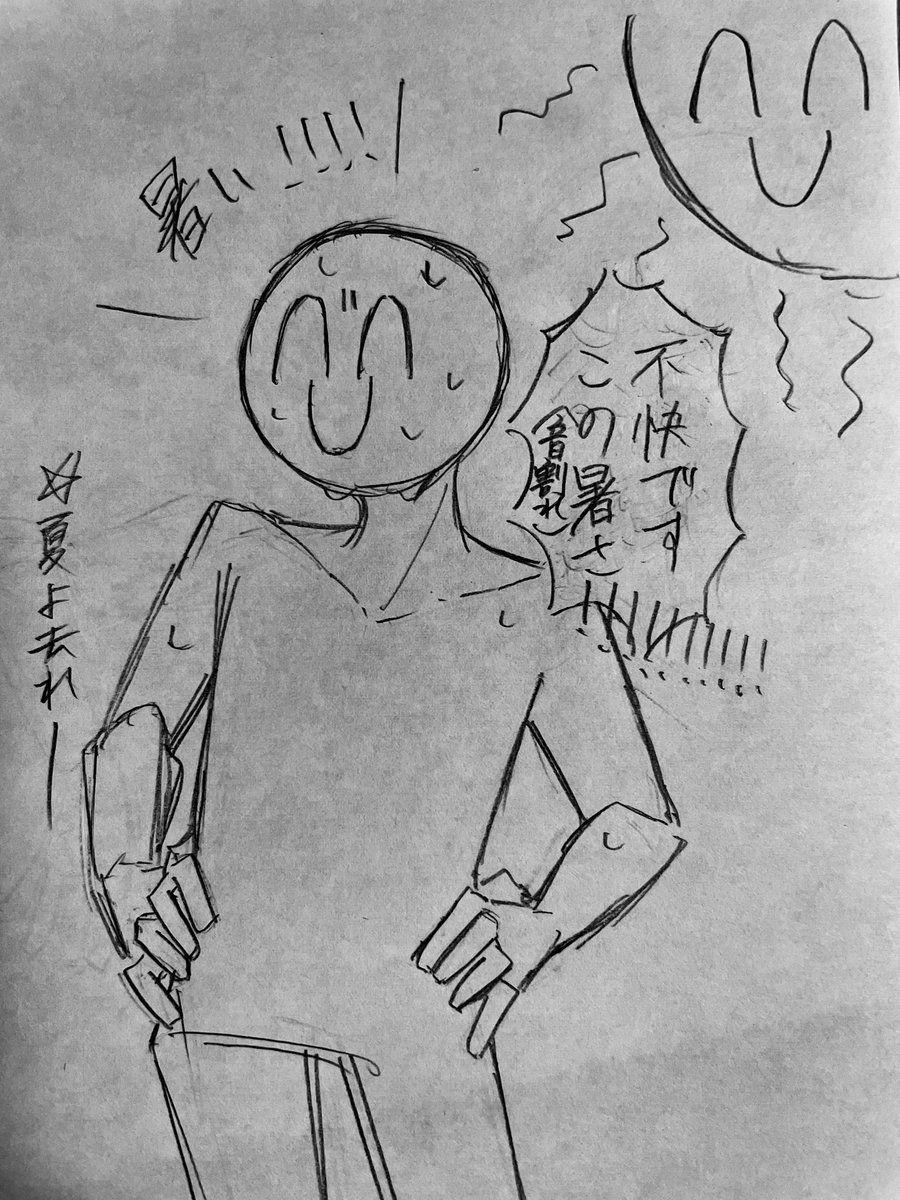 暑い!!!!
不快です
この暑さ!!!!!!!!!!
(音割れ)
☆夏よ去れー